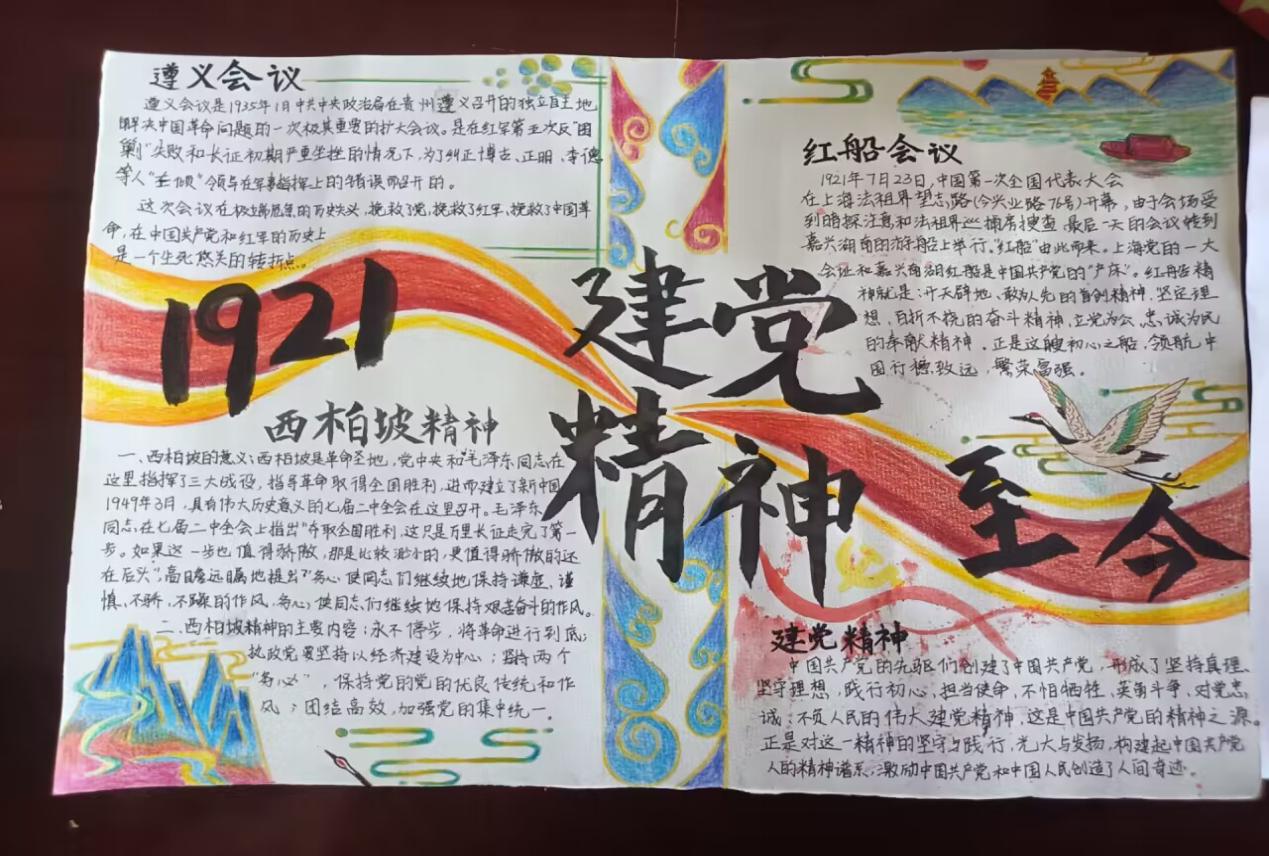 遵义会议
遵义会议是1935年1月中共中央政治局在贵州遵义召开的独立自主地
解决中国革命问题的一次极其重要的扩大会议。是在红军第五次反"围
剿"失败和长征初期严重受挫的情况下,为了纠正博古、王明、李德
等人"左倾"领导在军事指挥上的错误而召开的。
这次会议在极端危急的历史关头,挽救了党,挽救了红军,挽救了中国革
命,在中国共产党和红军的历史上
是一个生死悠关的转折点。
1921
建党
精神
至今
西柏坡精神
一、西柏坡的意义:西柏坡是革命圣地,党中央和毛泽东同志在
这里指挥了三大战役,指导革命取得全国胜利,进而建立了新中国
1949年3月,具有伟大历史意义的七届二中全会在这里召开。毛泽东
同志在七届二中全会上指出"夺取全国胜利,这只是万里长征走完了第一
步。如果这一步也值得骄傲,那是比较渺小的,更值得骄傲的还
在后头",高瞻远瞩地提出了"务必使同志们继续地保持谦虚、谨
慎、不骄、不躁的作风,务必使同志们继续地保持艰苦奋斗的作风。
二、西柏坡精神的主要内容:永不停步,将革命进行到底;
执政党要坚持以经济建设为中心;坚持两个
"务必",保持党的党的优良传统和作
风;团结高效,加强党的集中统一。
红船会议
1921年7月23日,中国第一次全国代表大会
在上海法租界望志路(今兴业路76号)开幕,由于会场受
到暗探注意和法租界巡捕房搜查,最后一天的会议转到
嘉兴湖南的游船上举行。"红船"由此而来。上海党的一大
会址和嘉兴南湖红船是中国共产党的"产床"。红船精
神就是:开天辟地、敢为人先的首创精神,坚定理
想、百折不挠的奋斗精神,立党为公、忠诚为民
的奉献精神。正是这艘初心之船,领航中
国行稳致远,繁荣富强。
建党精神
中国共产党的先驱们创建了中国共产党,形成了坚持真理、
坚守理想,践行初心、担当使命,不怕牺牲、英勇斗争,对党忠
诚、不负人民的伟大建党精神,这是中国共产党的精神之源。
正是对这一精神的坚守与践行,光大与发扬,构建起中国共产党
人的精神谱系,激励中国共产党和中国人民创造了人间奇迹。